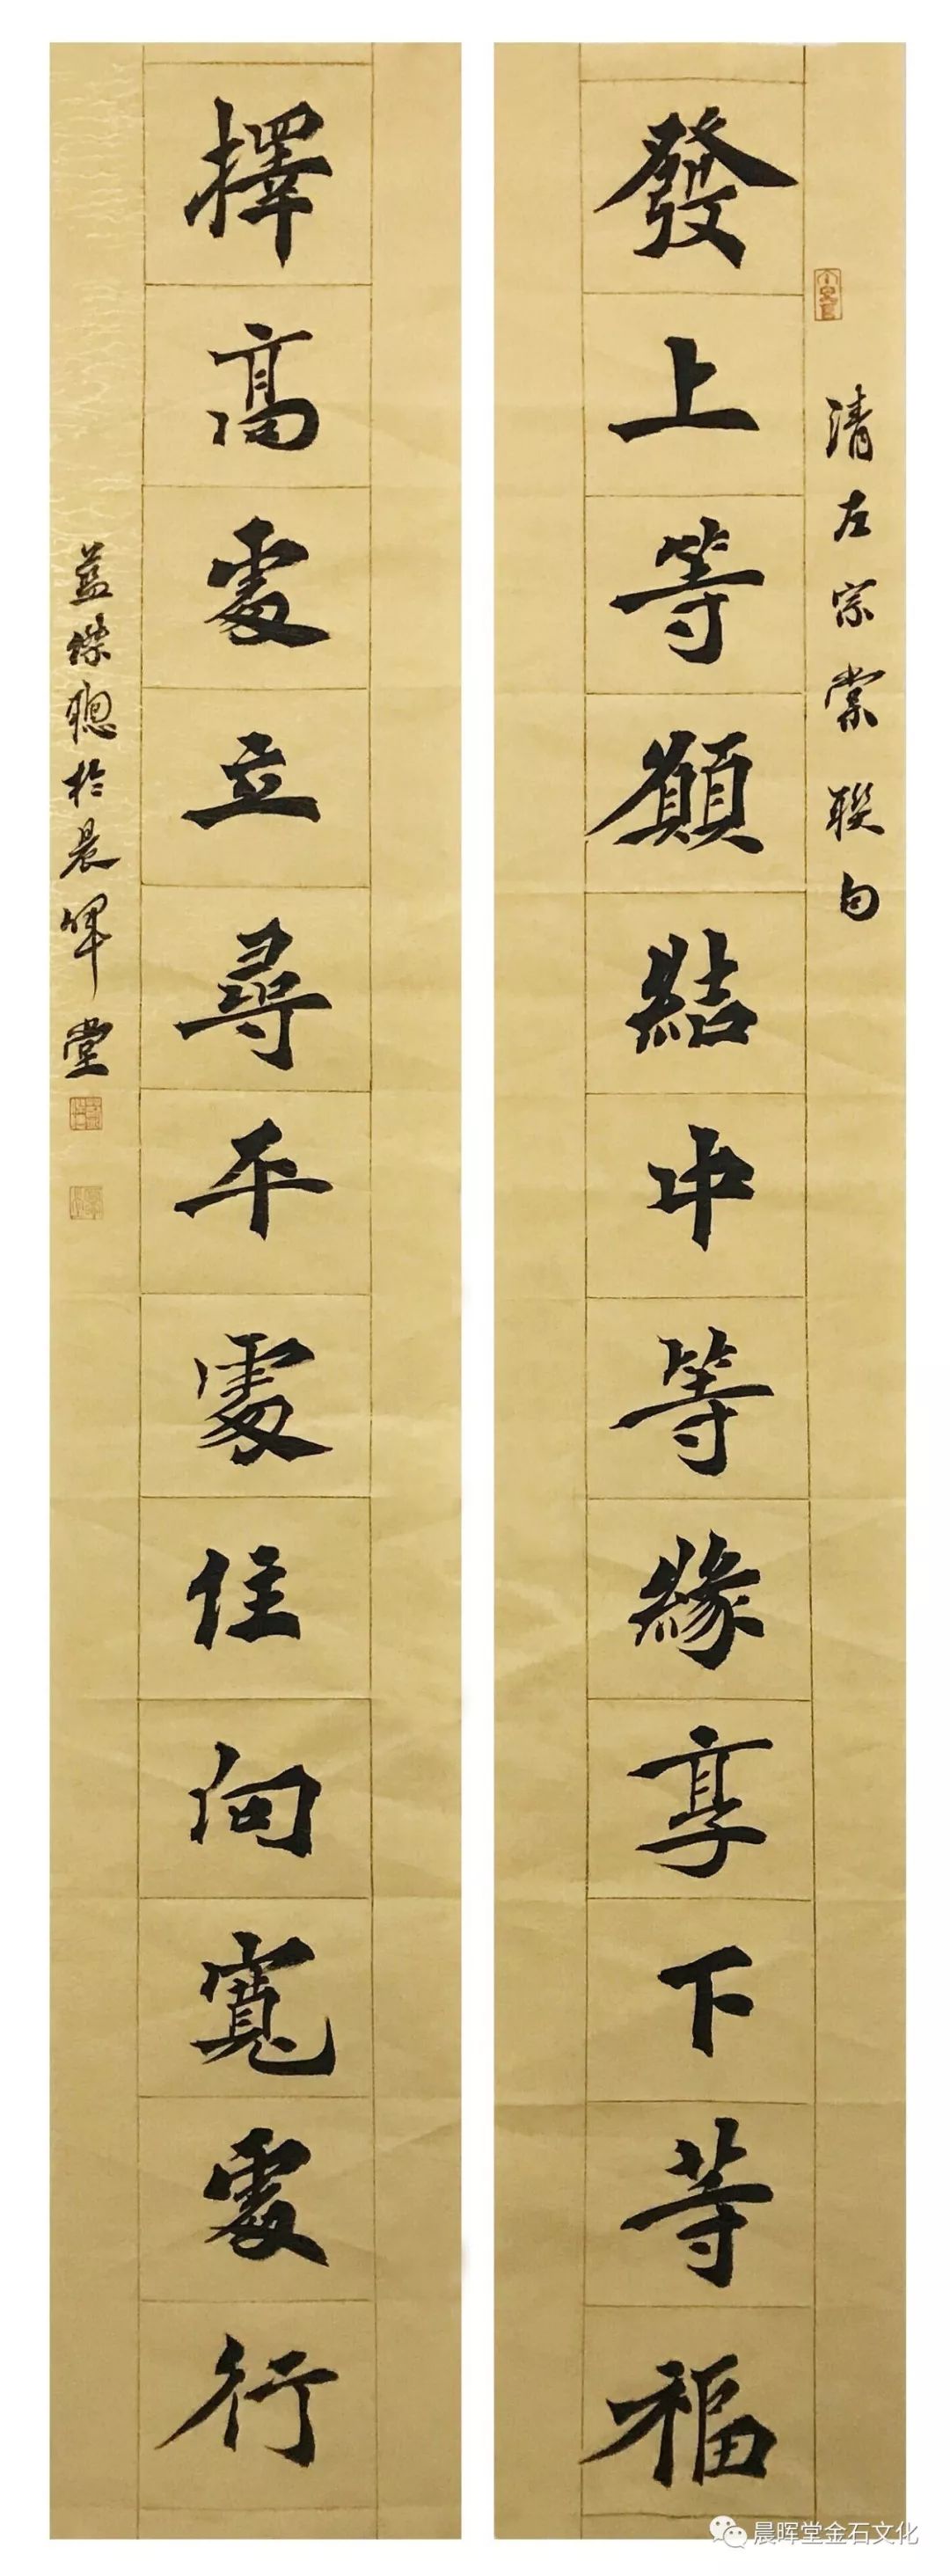 清左宗棠聯句
發上等願結中等緣享下等福
擇高處立尋平處住向寬處行
藍傑聰於晨暉堂
晨晖堂金石文化